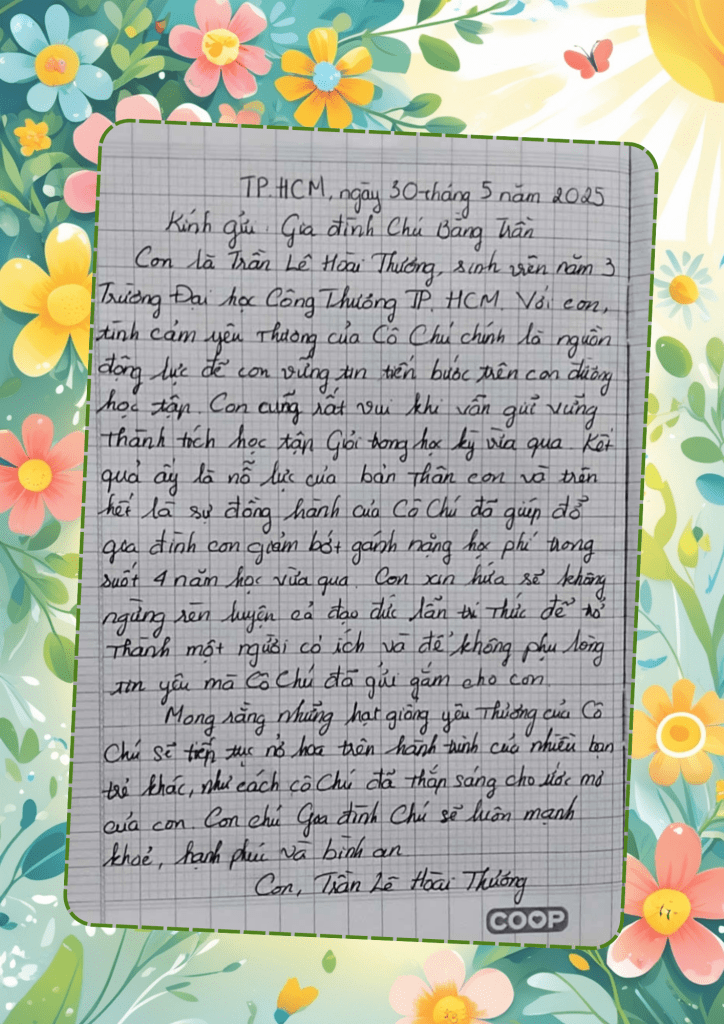 TP. HCM, ngày 30 tháng 5 năm 2025
Kính gửi: Gia đình Chú Bằng Trần
Con là Trần Lê Hoài Thương, sinh viên năm 3
Trường Đại học Công Thương TP. HCM. Với con,
tình cảm yêu thương của Cô Chú chính là nguồn
động lực để con vững tin tiến bước trên con đường
học tập. Con cũng rất vui khi vẫn giữ vững
thành tích học tập Giỏi trong học kỳ vừa qua. Kết
quả ấy là nỗ lực của bản thân con và trên
hết là sự đồng hành của Cô Chú đã giúp đỡ
gia đình con giảm bớt gánh nặng học phí trong
suốt 4 năm học vừa qua. Con xin hứa sẽ không
ngừng rèn luyện cả đạo đức lẫn tri thức để trở
thành một người có ích và để không phụ lòng
tin yêu mà Cô Chú đã gửi gắm cho con.
Mong rằng những hạt giống yêu thương của Cô
Chú sẽ tiếp tục nở hoa trên hành trình của nhiều bạn
trẻ khác, như cách cô Chú đã thắp sáng cho ước mơ
của con. Con chú Gia đình Chú sẽ luôn mạnh
khoẻ, hạnh phúc và bình an
Con, Trần Lê Hoài Thương
COOP